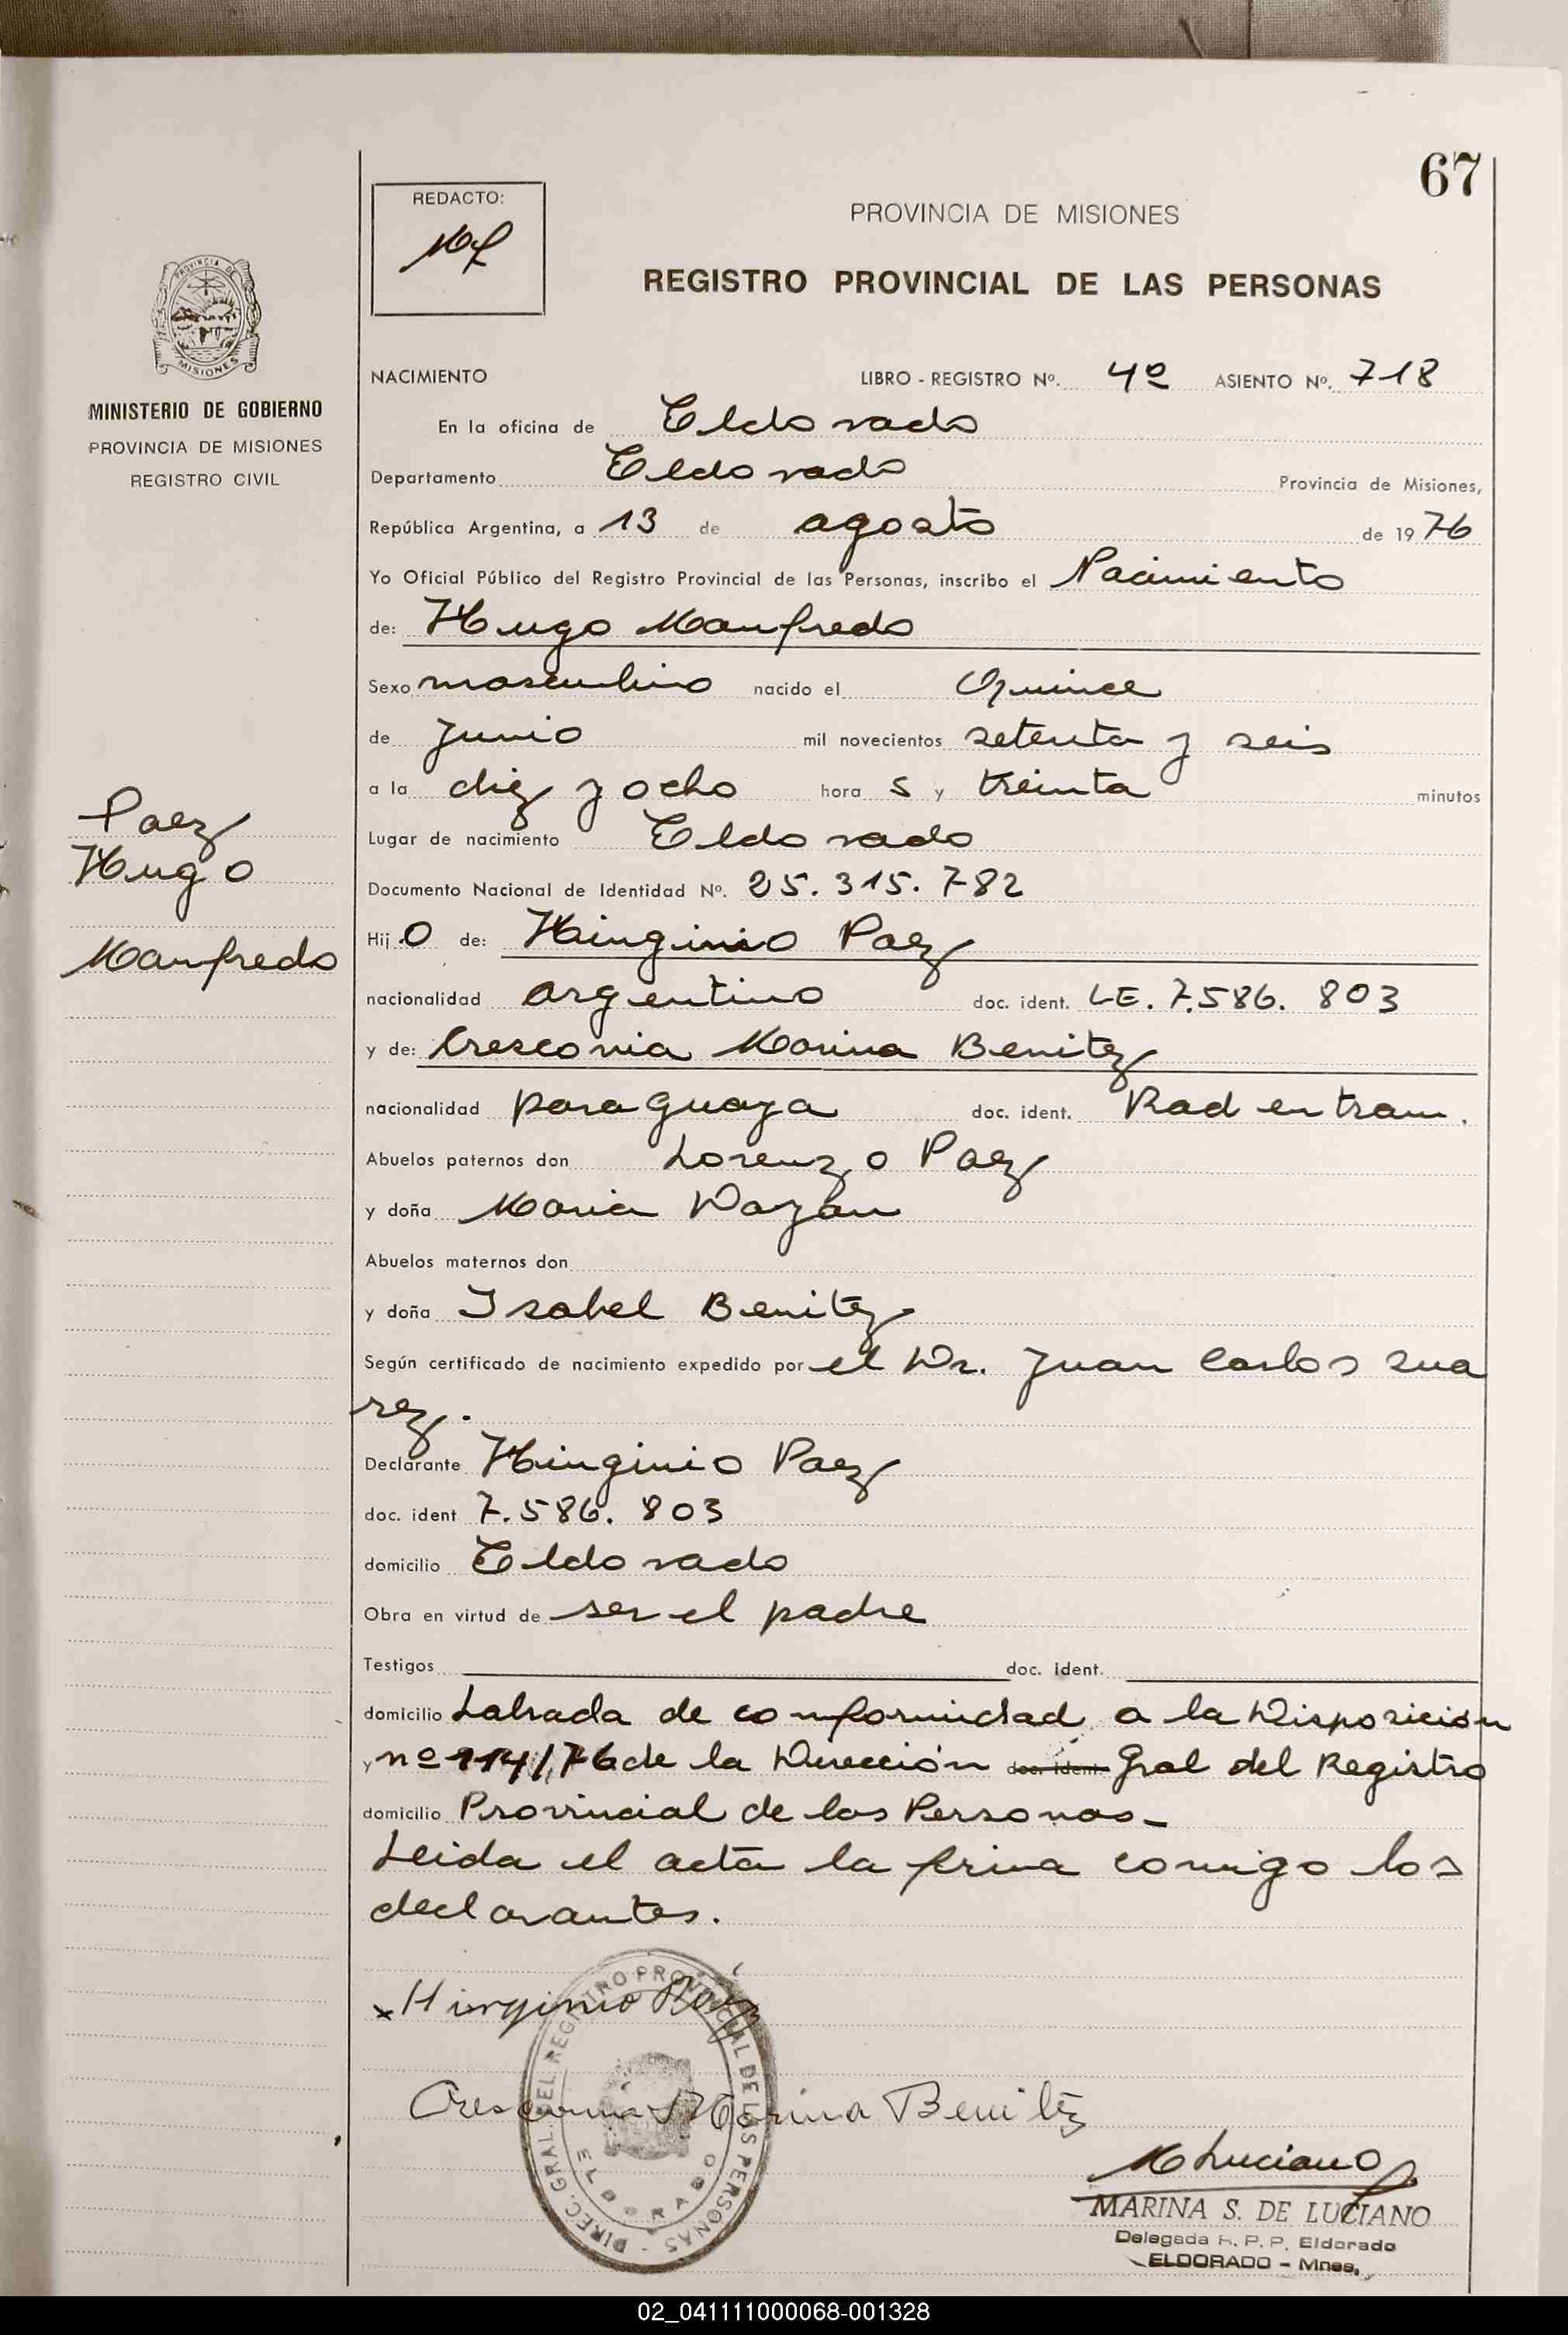 67
REDACTO:
PROVINCIA DE MISIONES
REGISTRO PROVINCIAL DE LAS PERSONAS
PROVINCIA DE MISIONES
MINISTERIO DE GOBIERNO
PROVINCIA DE MISIONES
REGISTRO CIVIL
NACIMIENTO LIBRO - REGISTRO Nº. 4º ASIENTO Nº. 718
En la oficina de Eldorado
Departamento Eldorado Provincia de Misiones,
República Argentina, a 13 de agosto de 1976
Yo Oficial Público del Registro Provincial de las Personas, inscribo el Nacimiento
de: Hugo Manfredo
Sexo masculino nacido el Quince
de Junio mil novecientos setenta y seis
a la diez y ocho hora s y treinta minutos
Paez
Hugo
Manfredo
Lugar de nacimiento Eldorado
Documento Nacional de Identidad Nº. 25.315.782
Hij o de: Hinginio Paez
nacionalidad argentino doc. ident. LE. 7.586.803
y de: Cresconia Marina Benitez
nacionalidad paraguaya doc. ident. Rad en tram.
Abuelos paternos don Lorenzo Paez
y doña Maria Dazan
Abuelos maternos don
y doña Isabel Benitez
Según certificado de nacimiento expedido por el Dr. Juan Carlos Sua
rez.
Declarante Hinginio Paez
doc. ident 7.586.803
domicilio Eldorado
Obra en virtud de ser el padre
Testigos doc. ident.
domicilio Labrada de conformidad a la Disposición
y nº 114/76 de la Dirección doc. ident. Gral del Registro
domicilio Provincial de las Personas-
Leida el acta la firma conmigo los
declarantes.
x Hinginio Páez
Cresconia Marina Benitez
DIREC. GRAL. DEL REGISTRO PROVINCIAL DE LAS PERSONAS -
ELDORADO
M Luciano
MARINA S. DE LUCIANO
Delegada R. P. P. Eldorado
ELDORADO - Mnes.
02_041111000068-001328